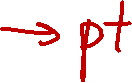 → pt